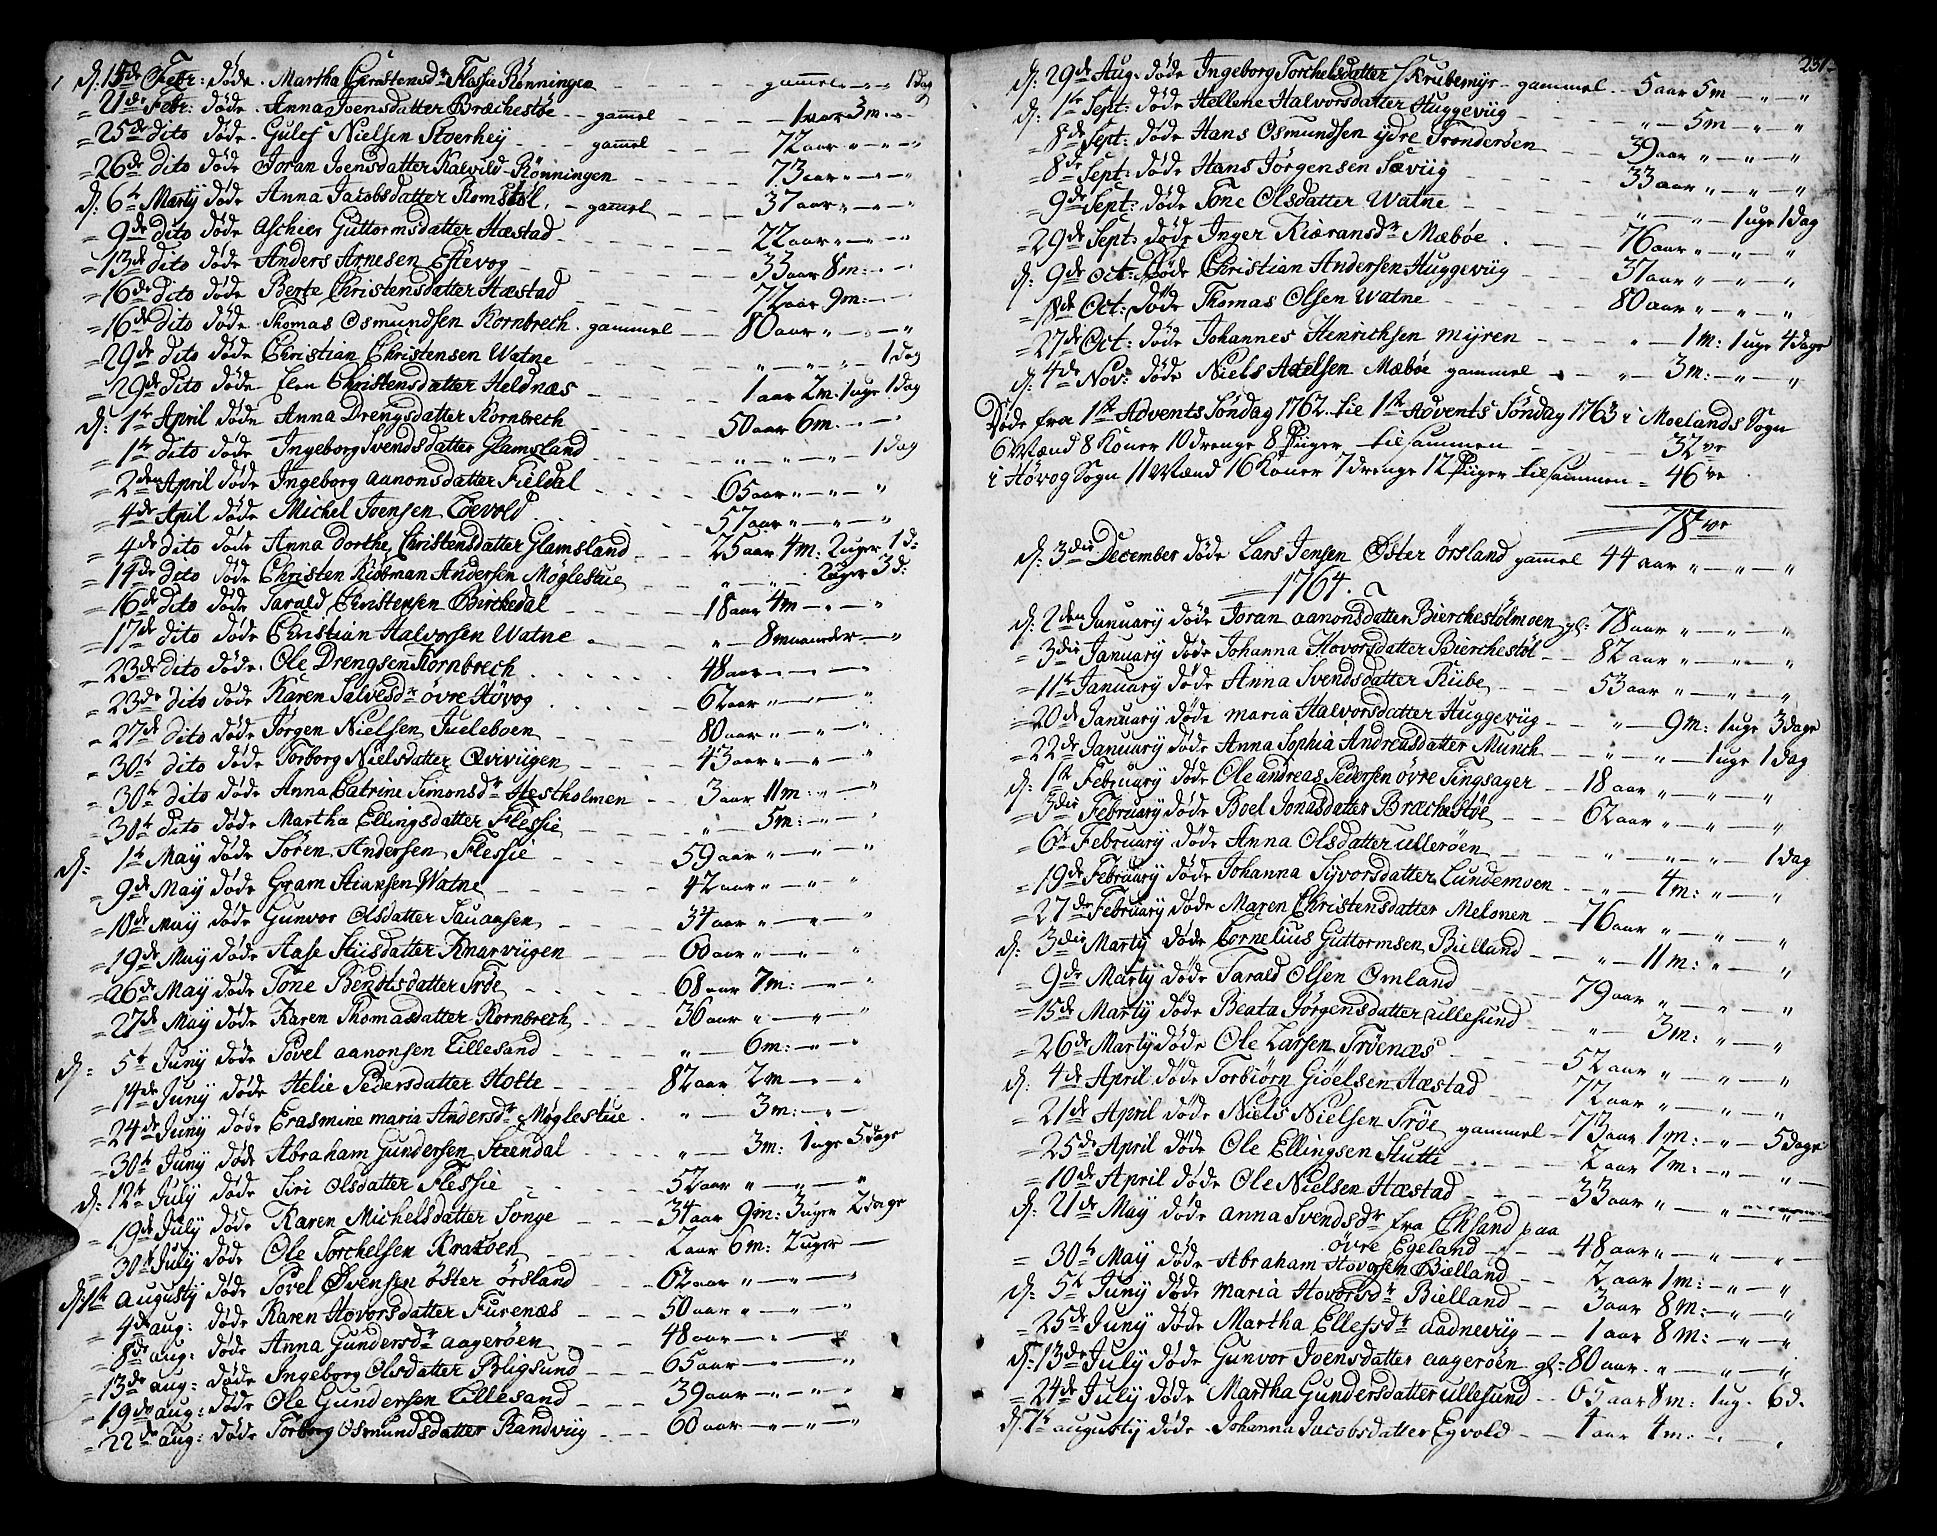 d: 15de Febr: døde. Martha Christensdr Flassie Rønningen - - - gammel " " 1 dag
= 21de Febr: døde. Anna Joensdatter Bræchestøe - gammel - - - 1 aar 3m: -
= 25de dito døde. Gulef Nielsen Stoerhey - - gammel - - - 72 aar " - " - "
= 26de dito døde Joran Joensdatter Kalvild-Rønningen - - - 73 aar " - " - "
d: 6te Martÿ døde Anna Jacobsdatter Romstøl, - gammel - - - 37 aar " - " - "
= 9de dito døde Aschier Guttormsdatter Hæstad - - - 22 aar " - " - "
= 13de dito døde Anders Arnesen Eftevog - - - 33 aar 8m: - -
= 16de dito døde Berte Christensdatter Hæstad - - - 72 aar 9m: - -
= 16de dito døde Thomas Osmundsen Kornbrech. gammel - - 80 aar " - " - "
= 29de dito døde Christian Christensen Watne - - - " - " - " - 1 dag
= 29de dito døde Elen Christensdatter Heldnæs - - - 1 aar 2m: 1 uge 1 dag
d: 1te April døde Anna Drengsdatter Kornbrech - - - 50 aar 6m: - -
= 1te dito døde Ingeborg Svendsdatter Glamsland - - - " - " - " - 1 dag
= 2den April døde Ingeborg Aanonsdatter Fieldal - - - 65 aar " - " - "
= 4de April døde Michel Joensen Løevold - - - 57 aar " - " - "
= 4de dito døde Anna Dorthe Christensdatter Glamsland - - - 25 aar 4m: 2 uger 1 d:
= 14de dito døde Christen Kiøbman Andersen Møglestue - - - " - " - 2 uger 3 d:
= 16de dito døde Tarald Christensen Birchedal - - - 18 aar 4m - " - "
= 17de dito døde Christian Halvorsen Watne - - - " - 8 maaneder - "
= 23de dito døde. Ole Drengsen Kornbrech - - - 48 aar - - -
= 23de dito døde Karen Salvesdr øvre Høvog - - - 62 aar " - - "
= 27de dito døde Jørgen Nielsen Jueleboen - - - 80 aar " - " - "
= 30te dito døde Torborg Nielsdatter Qvivügen - - - 43 aar " - " - "
= 30te dito døde Anna Catrine Simonsdr Hestholmen - - 3 aar 11m: " - "
= 30te dito døde Martha Ellingsdatter Flessie - - - " - 5m: - "
d: 1te May døde Søren Andersen Flessie - - - 59 aar " - " - "
= 9de May døde Gram Stiansen Watne - - - 42 aar " - " - "
= 18de May døde Gunvor Olsdatter Sauaasen - - - 34 aar " - " - "
= 19de May døde Aase Stiisdatter Knarvügen - - - 60 aar " - " - "
= 26de May døde Tone Bentsdatter Trøe - - - 68 aar 7m: - - "
= 27de May døde Karen Thomasdatter Kornbrech - - - 36 aar " - " - "
d: 5te Junÿ døde Povel Aanonsen Lillesand - - - " - 6m: - "
= 14de Junÿ døde Helie Pedersdatter Holte - - - 82 aar 2m - " - "
= 24de Junÿ døde Erasmine Maria Andersdr Møglestue - " - 3m: - " -
= 30te Junÿ døde Abraham Gundersen Steendal - - - " - 3m: 1 uge 5 dage
d: 12te Julÿ døde Siri Olsdatter Flessie - - - 52 aar " - " - "
= 19de Julÿ døde Karen Michelsdatter Songe - - - 34 aar 9m: 3 uger 2 dage
= 30te Julÿ døde Ole Torchelsen Kraoen - - - 2 aar 6m: 2 uger -
d: 1te Augustÿ døde Povel Svensen øster Ørsland - - 62 aar " - " - "
= 4de aug: døde Karen Hovorsdatter Furenæs - - - 50 aar " - " - "
= 8de aug: døde Anna Gundersdr aagerøen - - - 48 aar - " - "
= 13de aug: døde Ingeborg Olsdatter Bligsund - - - 65 aar - " - "
= 19de aug: døde Ole Gundersen Lillesand - - - 39 aar - " - "
= 22de aug: døde Torborg Osmundsdatter Randvüg - - - 60 aar - " - "
231
d: 29de Aug. døde Ingeborg Torchelsdatter Skrubemyr - gammel - 5 aar 5m - " - "
d: 1te Sept: døde Hellene Halvorsdatter Huggevüg - - - " - 5m - " - "
= 8de Sept: døde Hans Osmundsen ydre Tronderøen - - 39 aar " - " - "
= 8de Sept: døde Hans Jørgensen Sævüg - - - 33 aar " - " - "
= 9de Sept: døde Tone Olsdatter Watne - - - " - " - 1 uge 1 dag
= 29de Sept: døde Inger Kiæransdr Mæbøe - - - 76 aar " - " - "
d: 9de Oct: døde Christian Andersen Huggevüg - - - 37 aar " - " - "
= 18de Oct: døde Thomas Olsen Watne - - - 80 aar " - " - "
= 27de Oct: døde Johannes Henrichsen Myren - - - " - 1m: 1 uge 4 dage
d: 4de Nov: døde Niels Axelsen Mæbøe gammel - " - 3m: - " - "
Døde fra 1ste Advents Søndag 1762. til 1ste Advents Søndag 1763 i Moelands Sogn
6 Mænd 8 Koner 10 drenge 8 Piiger tilsammen - - - 32 ve
i Høvog Sogn 11 Mænd 16 Koner 7 drenge 12 Piiger tilsammen = 46 ve
78 ve
d: 3die December døde Lars Jensen Øster Ørsland gammel 44 aar " - " - "
1764.
d: 2den Januarÿ døde Joran Aanonsdatter Bierchestølmoen gl: 78 aar " - " - "
= 3die Januarÿ døde Johanna Hovorsdatter Bierchestøl - - 82 aar " - " - "
= 11te Januarÿ døde Anna Svendsdatter Kübe - - - 53 aar " - " - "
= 20de Januarÿ døde Maria Halvorsdatter Huggevüg - - " - 9m: 1 uge 3 dage
= 22de Januarÿ døde Anna Sophia Andreasdatter Munch - - " - " - 1 uge 1 dag
d: 1te Februarÿ døde Ole Andreas Pedersen øvre Tingsager - 18 aar " - " - "
= 3die Februarÿ døde Boel Jonasdatter Bræchestøe - - - 62 aar " - " - "
= 6te Februarÿ døde Anna Olsdatter Ullerøen - - - " - " - " - 1 dag
= 19de Februarÿ døde Johanna Syvorsdatter Lundemoen - - " - 4m: " - "
= 27de Februarÿ døde Maren Christensdatter Melonen - 76 aar " - " - "
d: 3die Martÿ døde Cornelius Guttormsen Bielland - - " - 11m: " - "
= 9de Martÿ døde Tarald Olsen Omland - - - 79 aar " - " - "
= 15de Martÿ døde Beata Jørgensdatter Ullesund - - " - 3m: " - "
= 26de Martÿ døde Ole Larsen Trøenæs - - - 52 aar " - " - "
d: 4de April døde Torbiørn Giøelsen Hæstad - - - 72 aar " - " - "
= 21de April døde Niels Nielsen Trøe gammel - 73 aar 1m: " - 5 dage
= 25de April døde Ole Ellingsen Stutte - - - 2 aar 7m: - " - "
= 10de April døde Ole Nielsen Hæstad - - - 33 aar " - " -
d: 21de May døde Anna Svendsdr fra Chsand paa
øvre Egeland - - 48 aar " - " - "
= 30te May døde Abraham Hovorsen Bielland - - 2 aar 1m: - " - "
d: 5te Junÿ døde Maria Hovorsdr Bielland - - 3 aar 8m: - " - "
= 25de Junÿ døde Martha Ellefsdr Aadnevüg - - 1 aar 8m: - " - "
d: 13de Julÿ døde Gunvor Joensdatter aagerøen gl: 80 aar " - " - "
= 24de Julÿ døde Martha Gundersdatter Ullesund - 65 aar 8m: 1 ug. 6 d.
d: 7te Augustÿ døde Johanna Jacobsdatter Egvold - - 4 aar 4m: - "